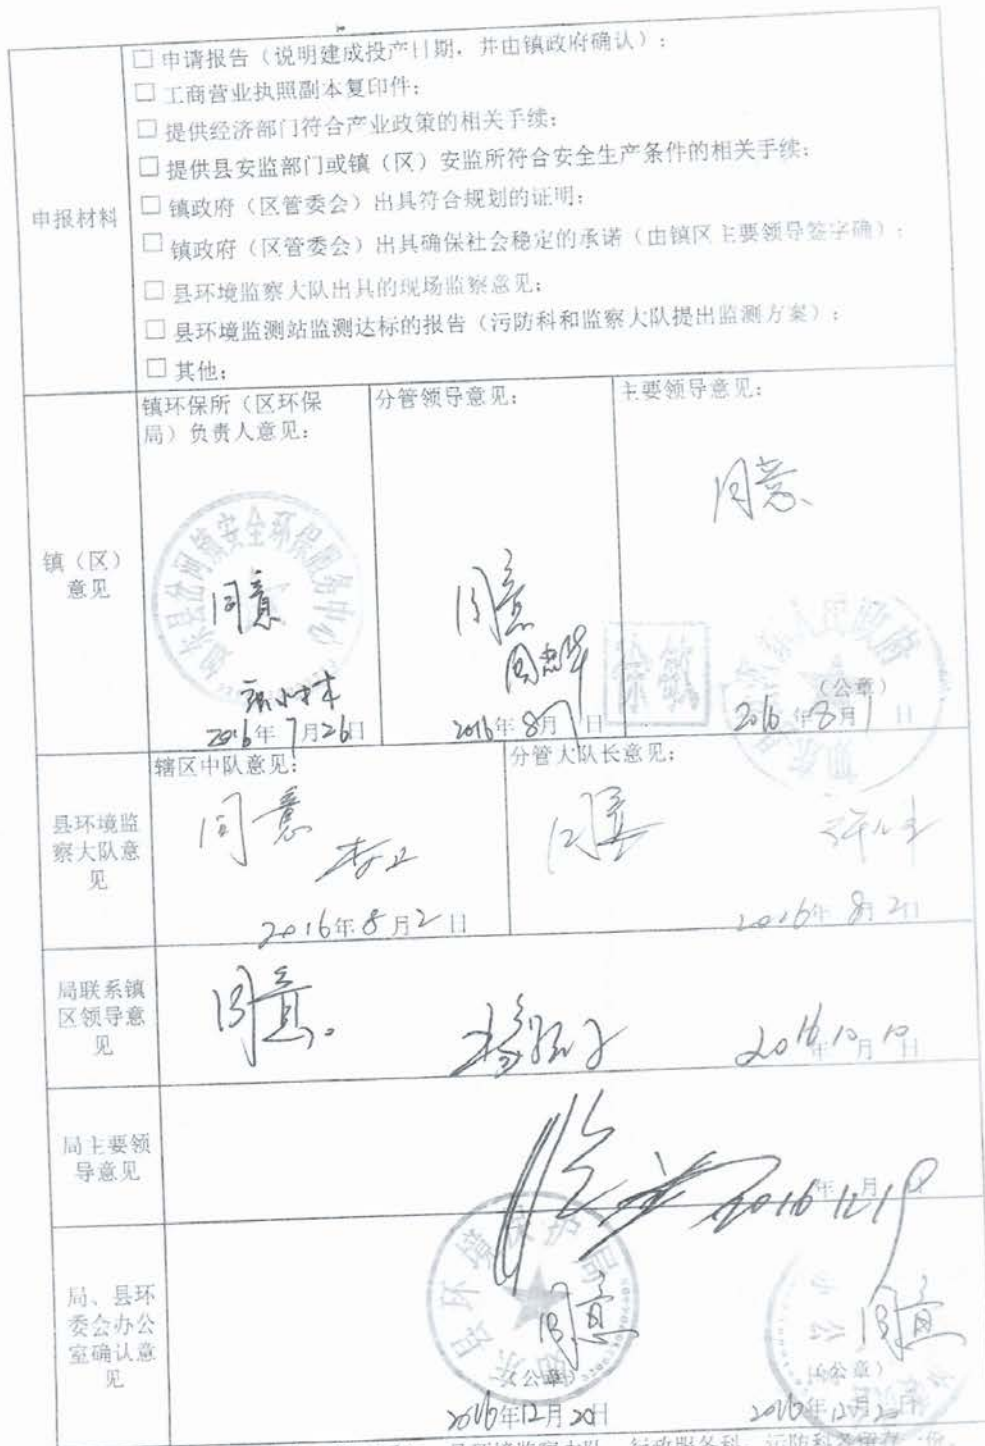 □ 申请报告（说明建成投产日期，并由镇政府确认）；
□ 工商营业执照副本复印件；
□ 提供经济部门符合产业政策的相关手续；
□ 提供县安监部门或镇（区）安监所符合安全生产条件的相关手续；
申报材料
□ 镇政府（区管委会）出具符合规划的证明；
□ 镇政府（区管委会）出具确保社会稳定的承诺（由镇区主要领导签字确）；
□ 县环境监察大队出具的现场监察意见；
□ 县环境监测站监测达标的报告（污防科和监察大队提出监测方案）；
□ 其他：
镇（区）
意见
镇环保所（区环保
局）负责人意见：
如东县岔河镇安全环保服务中心
同意
2016年7月26日
分管领导意见：
同意
2016年8月1日
主要领导意见：
同意
徐敏
人民政府
（公章）
2016年8月1日
县环境监
察大队意
见
辖区中队意见：
同意
李卫
2016年8月2日
分管大队长意见：
同意
2016年8月2日
局联系镇
区领导意
见
同意
2016年10月10日
局主要领
导意见
年 月
2016 12 19
局、县环
委会办公
室确认意
见
如东县环境保护局
同意
（公章）
2016年12月20日
办公
同意
（公章）
2016年12月20日
县环境监察大队、行政服务科、污防科各留存一份。